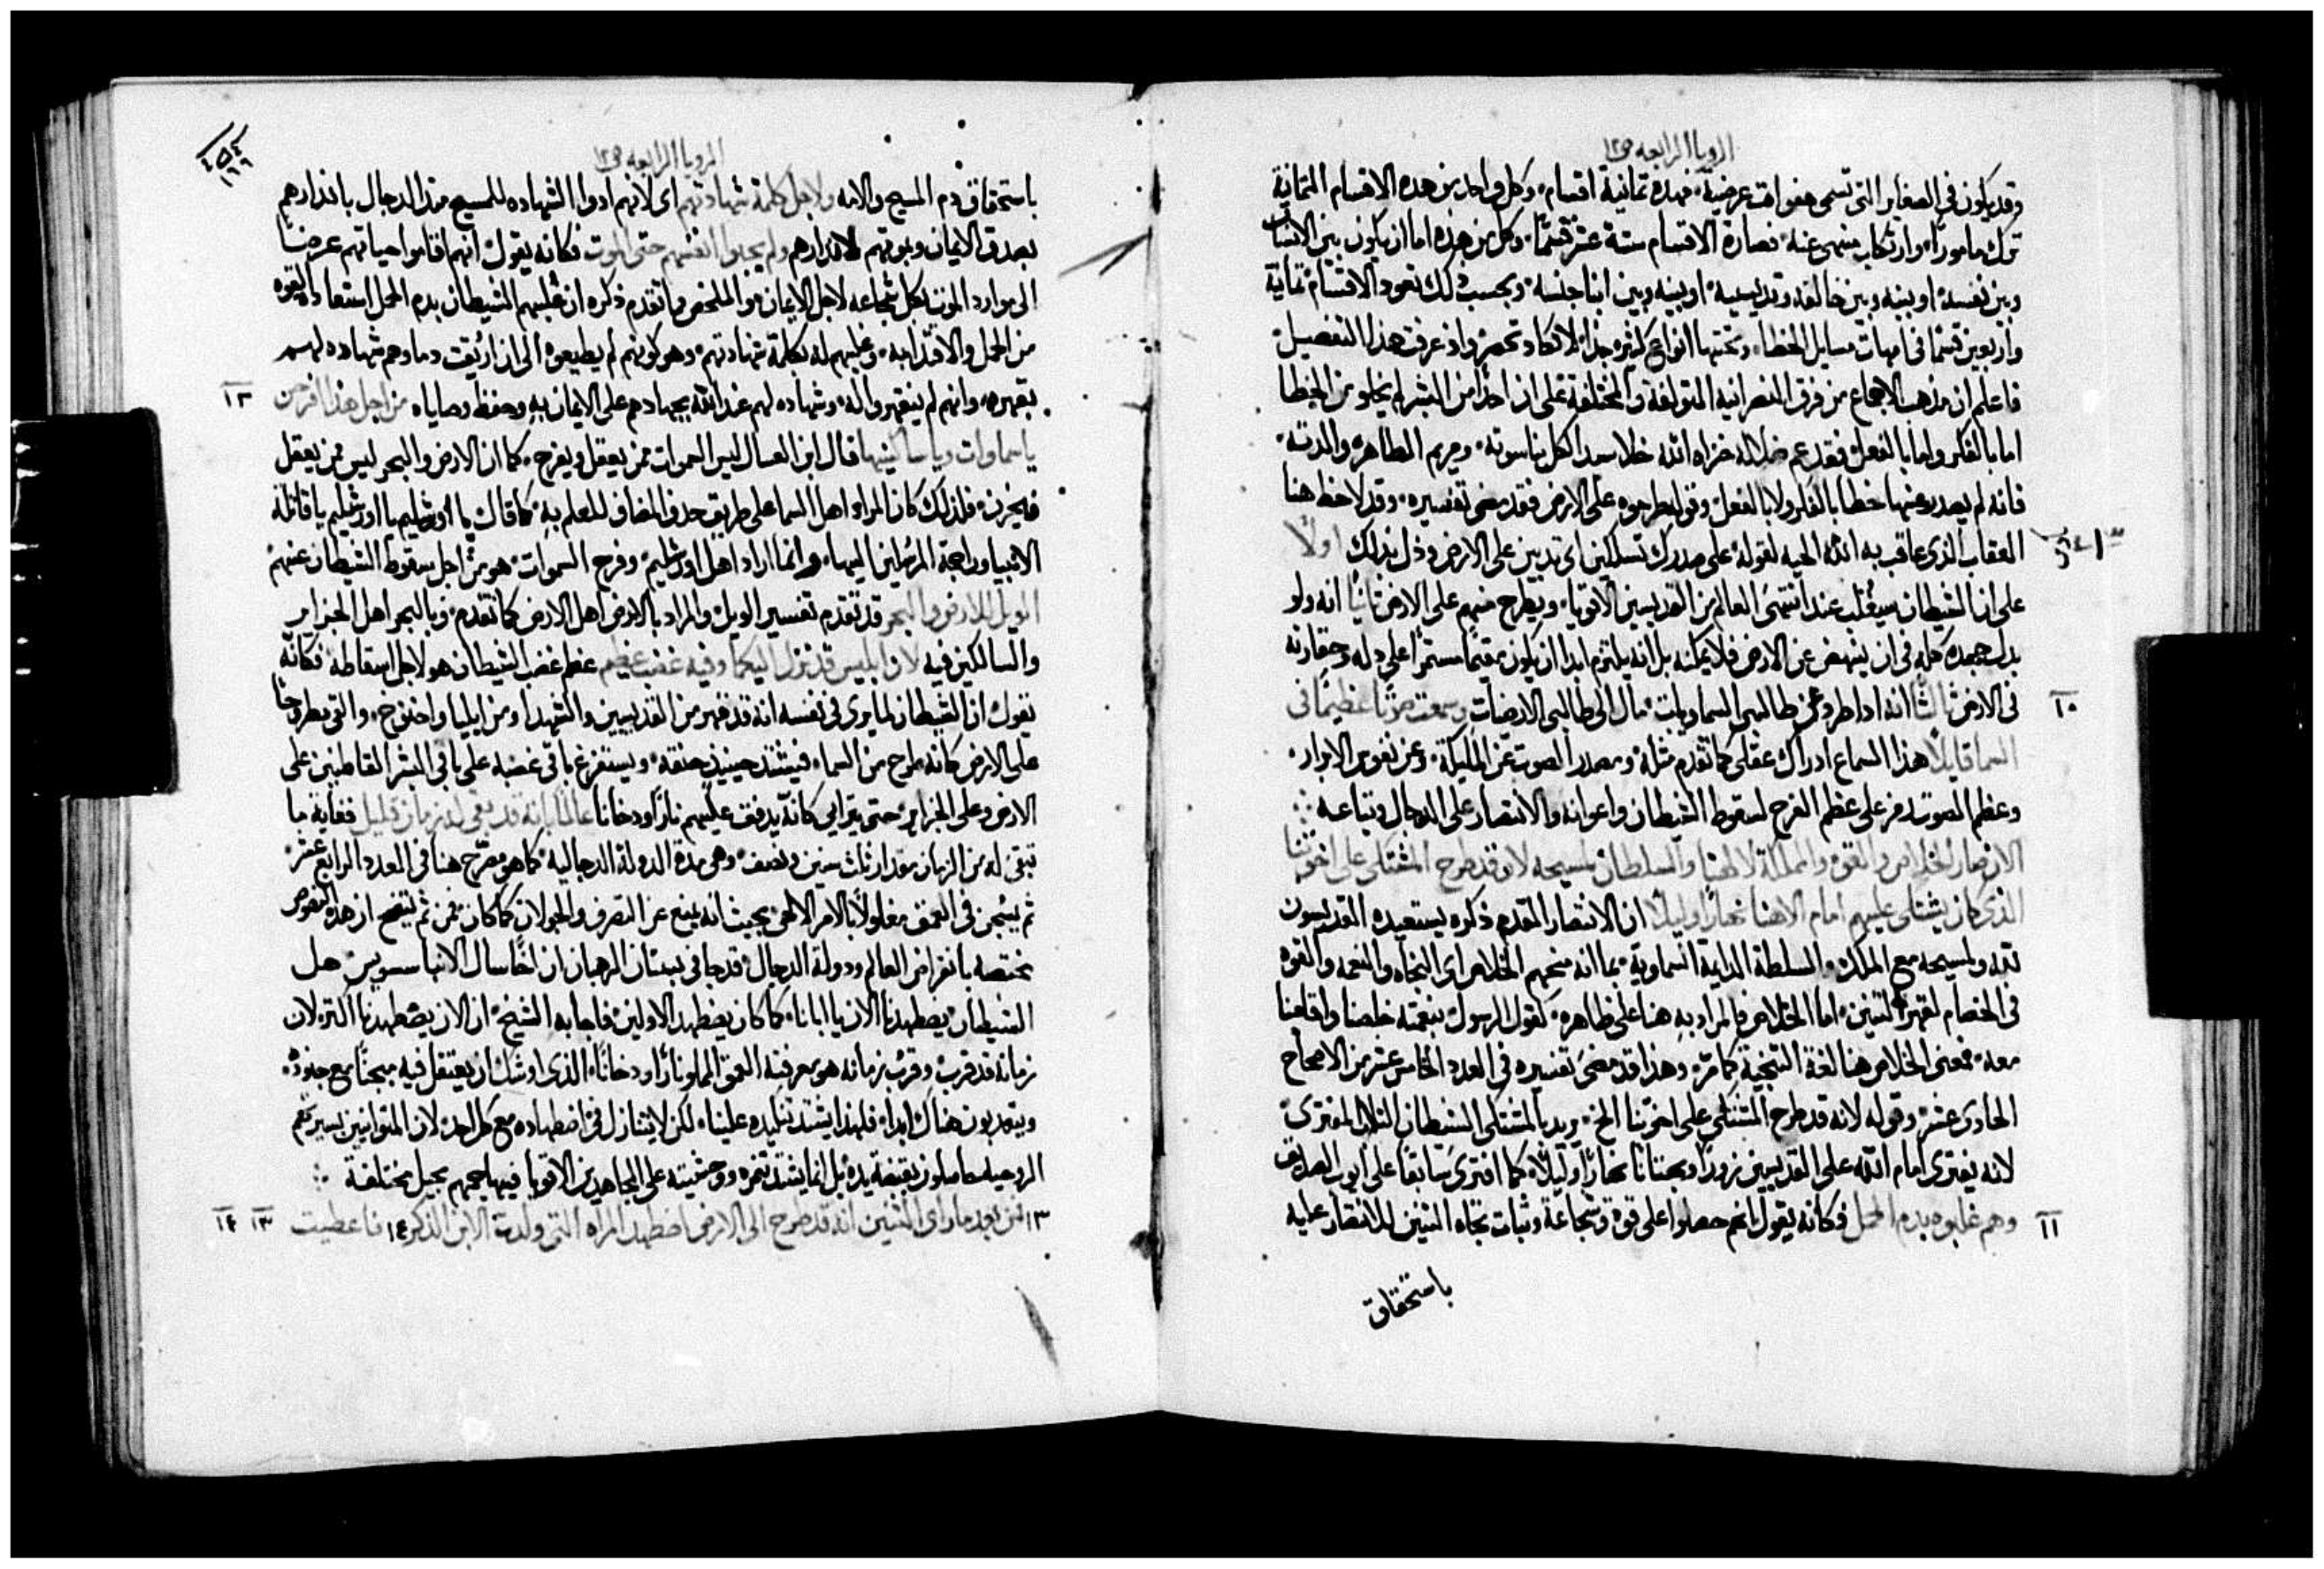 الرويا الرابعه ص١٢
وقد يكون في الصغاير التي تسمى هفوات عرضية، فهذه ثمانية اقسام، وكل واحد من هذه الاقسام الثمانية
ترك مامورًا، وارتكاب منهى عنه، فصارة الاقسام ستة عشر قسمًا، وكل من هذه اما ان يكون بين الانسان
وبين نفسه، او بينه وبين خالقه وقديسيه، او بينه وبين ابنا جنسه، وبحسب ذلك تعود الاقسام ثمانية
واربعين قسمًا في امهات مسايل الخطا، وتحتها انواع كثيره جدًا، لا تكاد تحصر، واذ عرفت هذا التفصيل
فاعلم ان مذهب الاجماع من فرق النصرانية المتولفة والمختلفة على ان احدًا من البشر لم يخلو من الخطا
اما بالفكر واما بالفعل، فقد عم ضلاله خزاه الله خلا سيد الكل بناسوته، ومريم الطاهره والدته،
فانه لم يصدر عنها خطا بالفكر ولا بالفعل، وقوله طرحوه على الارض فقد مضى تفسيره، وقد لاحظ هنا
العقاب الذي عاقب به الله الحيه لقوله على صدرك تسلكين اي تدبين على الارض وذل بذلك اولًا
على ان الشيطان سيغلب عند انتهى العالم من القديسين الاقويا، ويطرح منهم على الارض ثانيًا انه ولو
بذل جهده كله في ان ينهض عن الارض فلا يمكنه بل انه يلتزم ابدا ان يكون مقيمًا مستمرًا على ذله وحقارته
في الارض ثالثًا انه اذا طرد عن طالبى السماويات، مال الى طالبى الارضيات وسمعت صوتًا عظيمًا في
١٠
السما قايلًا هذا السماع ادراك عقلى كما تقدم مثله، ومصدر الصوت عن المليكة، وعن نفوس الابرار،
وعظم الصوت رمز على عظم الفرح لسقوط الشيطان واعوانه والانتصار على الدجال وتباعه
الان صار الخلاص والقوه والمملكة لالهنا والسلطان لمسيحه لانه قد طرح المشتكى على اخوتنا
الذي كان يشتكى عليهم امام الاهنا نهارًا وليلًا ان الانتصار المقدم ذكره يستعيده القديسون
لله ولمسيحه مع الملك والسلطة الدايمة السماوية، بما انه منحهم الخلاص اي النجاه والنعمه والقوه
في الخصام لقهر التنين، اما الخلاص فالمراد به هنا على ظاهره، كقول الرسول بنعمته خلصنا واقامنا
معه، فمعنى الخلاص هنا لغة التنجية كما مرّ، وهذا قد مضى تفسيره في العدد الخامس عشر من الاصحاح
الحادى عشر، وقوله لانه قد طرح المشتكى على اخوتنا الخ، يريد بالمشتكى الشيطان الثلاب المفترى
لانه يفترى امام الله على القديسين زورًا وبهتانًا نهارًا وليلًا، كما افترى سابقا على ايوب الصديق
وهم غلبوه بدم الحمل فكانه يقول انهم حصلوا على قوة وشجاعة وثبات تجاه التنين للانتصار عليه
١١
باستحقاق
٤٥٤
١٦٦
الرويا الرابعه ص١٢
باستحقاق دم المسيح والامه ولاجل كلمة شهادتهم اي لانهم ادوا الشهاده للمسيح ضد الدجال بانذارهم
بصدق الايمان وبموتهم لانذارهم ولم يحبوا انفسهم حتى الموت فكانه يقول انهم اقاموا حياتهم عرضًا
الى موارد الموت بكل شجاعه لاجل الايمان، والملخص مما تقدم ذكره ان غلبهم الشيطان بدم الحمل استعادة القوه
من الحمل والاقتدا به، وغلبهم له بكلمة شهادتهم، وهو كونهم لم يطيعوه الى ان اريقت دماوهم شهاده لهم
بقهره، وانهم لم ينقهروا له، وشهاده لهم عند الله بجهادهم على الايمان به وحفظ وصاياه من اجل هذا افرحن
١٢
ياسماوات وياساكنيها قال ابن العسال ليس السموات ممن يعقل ويفرح، كما ان الارض والبحر ليس ممن يعقل
فيحزن، فلذلك كان المراد اهل السما على طريق حذف المضاف للعلم به، كما قال يا اورشليم يا اورشليم يا قاتلة
الانبيا وراجمة المرسلين اليها، وانما اراد اهل اورشليم، وفرح السموات، هو من اجل سقوط الشيطان عنهم
الويل للارض والبحر قد تقدم تفسير الويل، والمراد بالارض اهل الارض كما تقدم، وبالبحر اهل الجزاير
والسالكين فيه لان ابليس قد نزل اليكما وفيه غضب عظيم عظم غضب الشيطان هو لاجل اسقاطه، فكانّه
يقول ان الشيطان لما يرى في نفسه انه قد قهر من القديسين والشهدا ومن ايليا واخنوخ، والتي مطروحًا
على الارض كانه طرح من السما، فيشتد حينيذ حنقه، ويستفرغ باقى غضبه على باقى البشر القاطنين على
الارض وعلى الجزاير، حتى يترايى كانّه يدفق عليهم نارًا ودخانا عالمًا بانه قد بقى له زمان قليل فغاية ما
تبقى له من الزمان مقدار ثلث سنين ونصف، وهى مدة الدولة الدجاليه، كما هو مصرّح هنا في العدد الرابع عشر،
ثم يسجن في العمق مغلولًا بالامر الالهى، بحيث انه يمنع عن التصرف والجولان كما كان، فمن ثم يتضح ان هذه النصوص
مختصه بانقراض العالم ودولة الدجال، قد جا في بستان الرهبان ان اخًا سال الانبا سسوين، هل
الشيطان يضطهدنا الان يا ابانا، كما كان يضطهد الاولين، فاجابه الشيخ، ان الان يضطهدنا اكثر، لان
زمانه قد قرب، وقرب زمانه هو معرفته العمق المملو نارًا ودخانًا، الذي اوشك ان يعتقل فيه سجنًا مع جنوده
ويتعذبون هناك ابدًا، فلهذا يشتد تنكيده علينا، لكن لا يتنازل في اضطهاده مع كل احد، لان المتوانيين بسيرتهم
الروحيه حاصلون بقبضة يده، بل انما يشتد تنمره ووحشيته على المجاهدين الاقويا فيهاجمهم بحيل مختلفة
١٣ فمن بعد ما راى التنين انه قد طرح الى الارض اضطهد المراه التي ولدت الابن الذكر ١٤ فاعطيت
١٣ ١٤